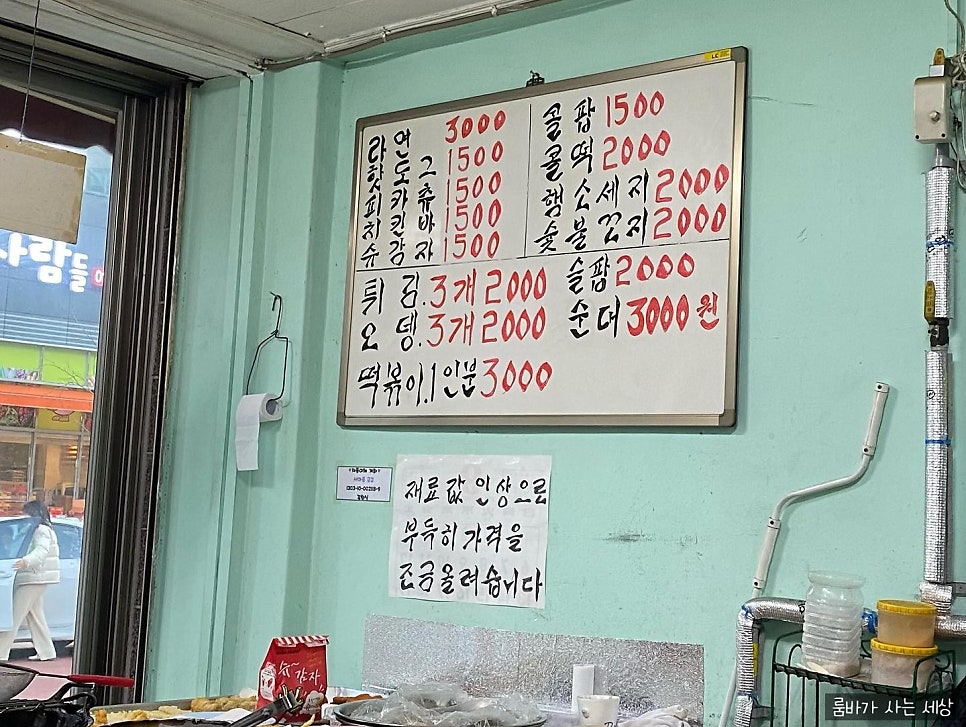 라면 3000
핫도그 1500
피카츄 1500
치킨바 1500
슈감자 1500
콜팝 1500
콜떡 2000
햄소세지 2000
숯불꼬지 2000
튀김.3개 2000
오뎅.3개 2000
떡볶이.1인분 3000
슬팝 2000
순대 3000원
재료값 인상으로
부득히 가격을
조금올려습니다
사람들
슈~감자
룸바가 사는 세상